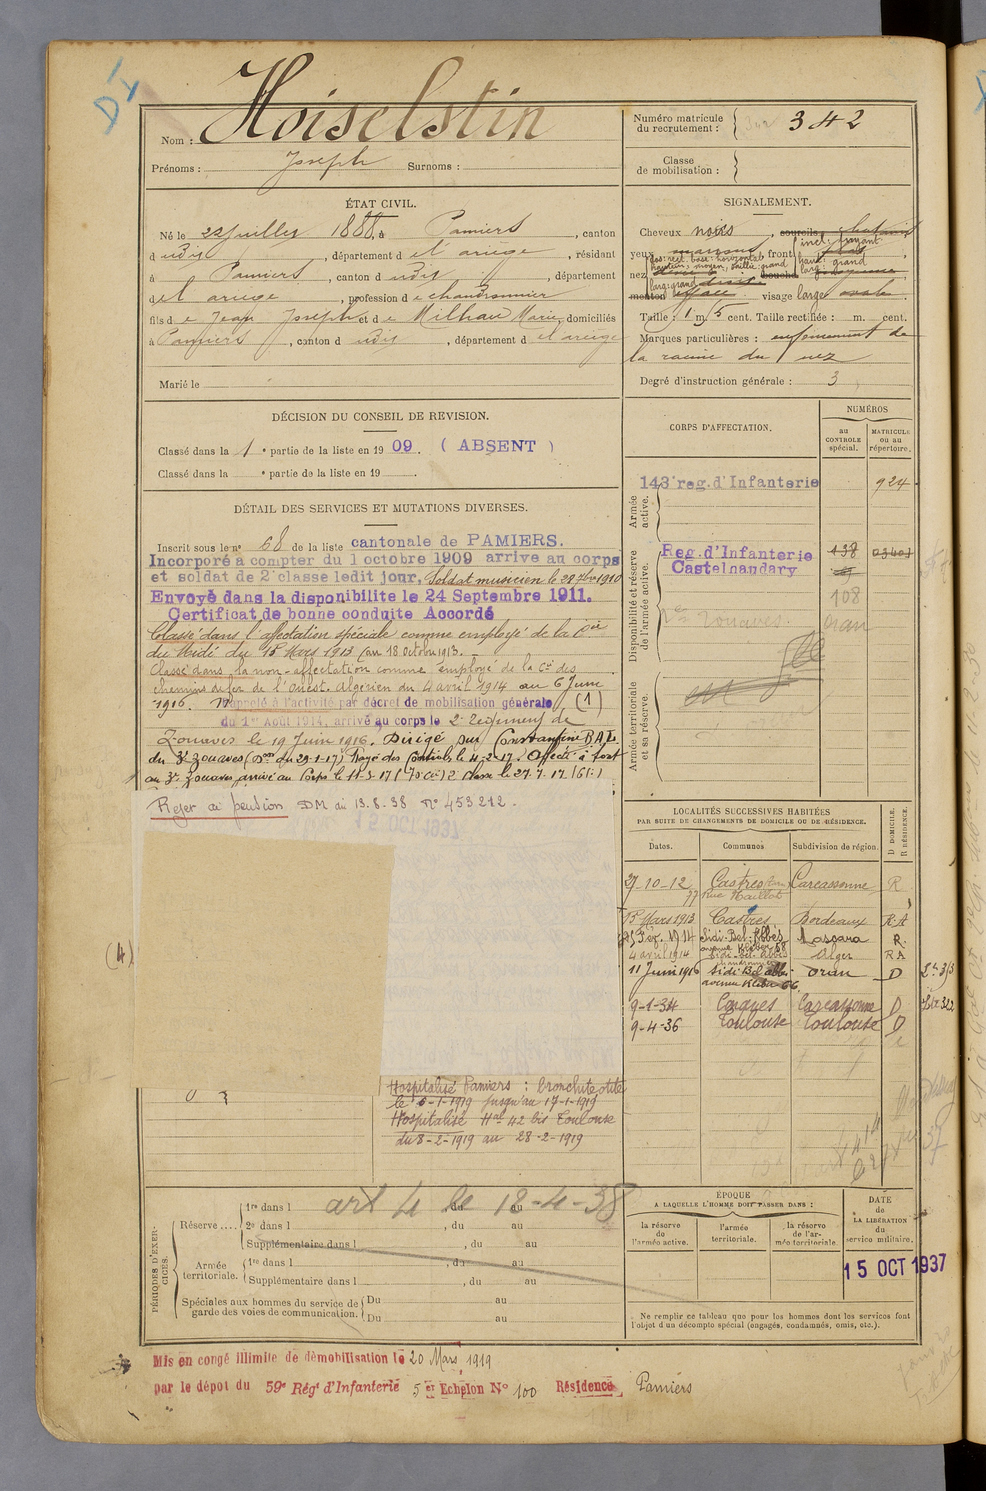 DI
Nom : Hoiselstin
Prénoms : Joseph Surnoms :
Numéro matricule du recrutement : 342
Classe de mobilisation :
ÉTAT CIVIL.
Né le 22 Juillet 1888, à Pamiers, canton
d udit, département d el ariège, résidant
à Pamiers, canton d udit, département
d el ariège, profession d e chaudronnier
fils d e Jean Joseph et d e Milhau Marie, domiciliés
à Pamiers, canton d udit, département d el ariège
Marié le
SIGNALEMENT.
Cheveux noirs, sourcils châtains
yeux marrons front incl: fuyant
haut: grand
larg: grand
nez dos: rect. base: horizontal
hauteur: moyen, saillie: grand
larg: grand bouche moyenne
menton effacé visage large ovale.
Taille : 1 m. 5 cent. Taille rectifiée : m. cent.
Marques particulières : enfoncement de
la racine du nez
Degré d'instruction générale : 3
DÉCISION DU CONSEIL DE REVISION.
Classé dans la 1e partie de la liste en 1909. (ABSENT)
Classé dans la e partie de la liste en 19
CORPS D'AFFECTATION.
NUMÉROS
au CONTROLE spécial.
MATRICULE ou au répertoire.
Armée active.
143e reg. d'Infanterie 924
Disponibilité et réserve de l'armée active.
Reg. d'Infanterie 138
Castelnaudary
108
2es Zouaves. Oran
Armée territoriale et sa réserve.
DÉTAIL DES SERVICES ET MUTATIONS DIVERSES.
Inscrit sous le no 68 de la liste cantonale de PAMIERS.
Incorporé à compter du 1 octobre 1909 arrive au corps
et soldat de 2e classe ledit jour. Soldat musicien le 28 7bre 1910
Envoyé dans la disponibilite le 24 Septembre 1911.
Certificat de bonne conduite Accordé
Classé dans l'affectation spéciale comme employé de la Cie
du Midi du 15 Mars 1913 (au 18 octobre 1913.
Classé dans la non-affectation comme employé de la Cie des
chemins de fer de l'Ouest-Algérien du 4 avril 1914 au 6 Juin
1916. Rappelé à l'activité par décret de mobilisation générale (1)
du 1er Août 1914, arrivé au corps le 2e Régiment de
Zouaves le 19 Juin 1916. Dirigé sur Constantine
du 3e Zouaves (Don du 29-1-17) Rayé des Contrôles le 4-2-17. Affecté
au 3e Zouaves, arrivé au Corps le
Rejet de pension DM du 13.8-38 No 453212.
(4)
Hospitalisé Pamiers : bronchite otite
le 6-1-1919 jusqu'au 17-1-1919
Hospitalisé Hal 42 bis Toulouse
du 8-2-1919 au 28-2-1919
LOCALITÉS SUCCESSIVES HABITÉES
PAR SUITE DE CHANGEMENTS DE DOMICILE OU DE RÉSIDENCE.
Dates. Communes Subdivision de région. D DOMICILE. R RÉSIDENCE.
27-10-12 Castres Carcassonne R
Rue Maillot
15 Mars 1913 Castres Bordeaux R.A
Fév. 1914 Sidi-Bel-Abbès Mascara R.
avenue Kléber 58
4 avril 1914 Sidi-Bel-Abbès Alger RA
11 Juin 1916 Sidi Bel abbès Oran D
avenue Kléber 66
9-1-34 Conques Carcassonne D
9-4-36 Toulouse Toulouse D
PÉRIODES D'EXERCICES.
art 4 le 18-4-38
Réserve .... 1re dans l , du au
2e dans l , du au
Supplémentaire dans l , du au
Armée territoriale. 1re dans l , du au
Supplémentaire dans l , du au
Spéciales aux hommes du service de garde des voies de communication. Du au
Du au
ÉPOQUE
A LAQUELLE L'HOMME DOIT PASSER DANS :
la réserve de l'armée active.
l'armée territoriale.
la réserve de l'armée territoriale.
DATE de LA LIBÉRATION du service militaire.
15 OCT 1937
Ne remplir ce tableau que pour les hommes dont les services font
l'objet d'un décompte spécial (engagés, condamnés, omis, etc.).
Mis en congé illimité de démobilisation le 20 Mars 1919
par le dépot du 59e Régt d'Infanterie 5 er Echelon No 100 Résidence Pamiers